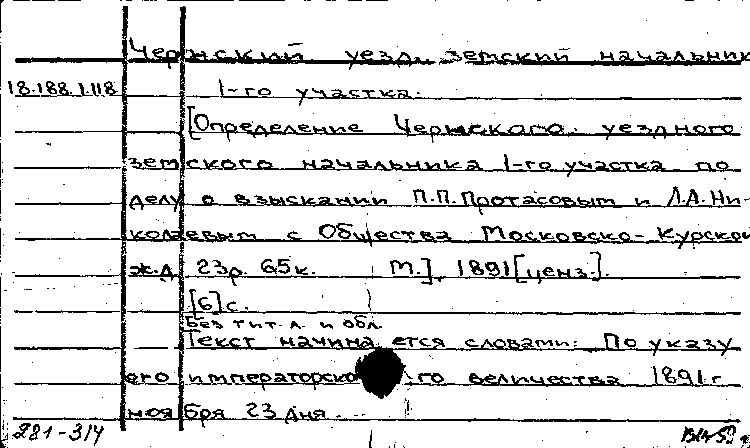 Чернский уездн. земский начальник
18.188.1.118 1-го участка.
[Определение Чернского уездного
земского начальника 1-го участка по
делу о взыскании П.П.Протасовым и Л.А.Ни-
колаевым с Общества Московско-Курской
ж.д. 23р. 65к. М.], 1891[ценз.].
[6]с.
Без тит.л. и обл.
Текст начинается словами: По указу
его императорского величества 1891г
ноября 23 дня.
281-314